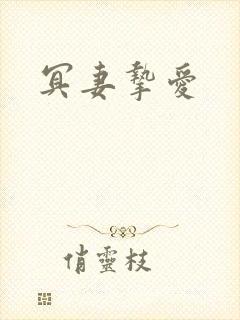 冥妻摯愛
俏靈枝